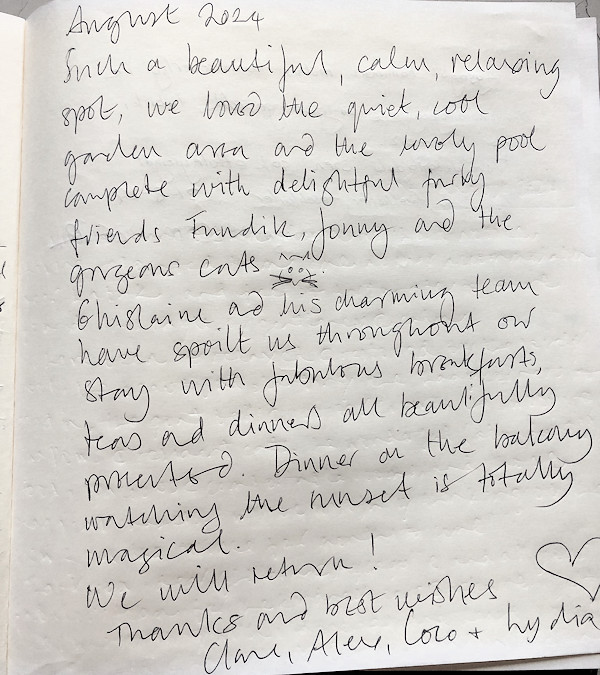 August 2024
Such a beautiful, calm, relaxing
spot, we loved the quiet, cool
garden area and the lovely pool
complete with delightful furry
friends Fundik, Jonny and the
gorgeous cats
Ghislaine ad his charming team
have spoilt us throughout our
stay with fabulous breakfasts,
teas and dinners all beautifully
presented. Dinner on the balcony
watching the sunset is totally
magical.
We will return!
Thanks and best wishes
Clare, Alex, Coco + Lydia